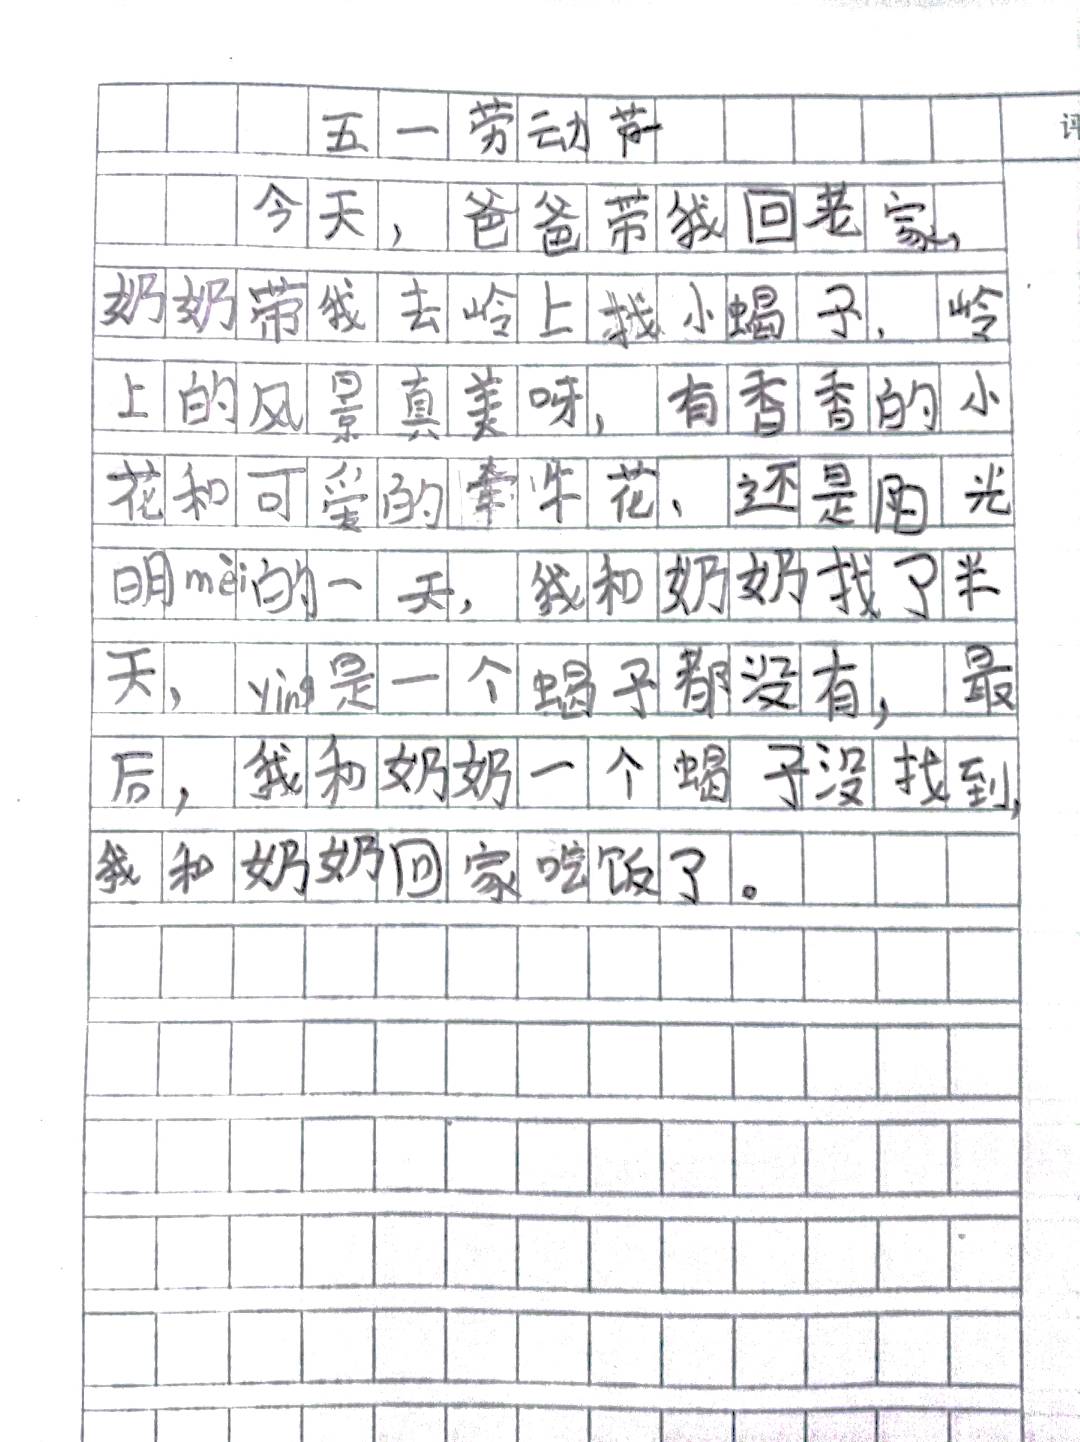 五一劳动节
评
今天，爸爸带我回老家，
奶奶带我去岭上找小蝎子，岭
上的风景真美呀，有香香的小
花和可爱的牵牛花、还是阳光
明mèi的一天，我和奶奶找了半
天，ying是一个蝎子都没有，最
后，我和奶奶一个蝎子没找到，
我和奶奶回家吃饭了。